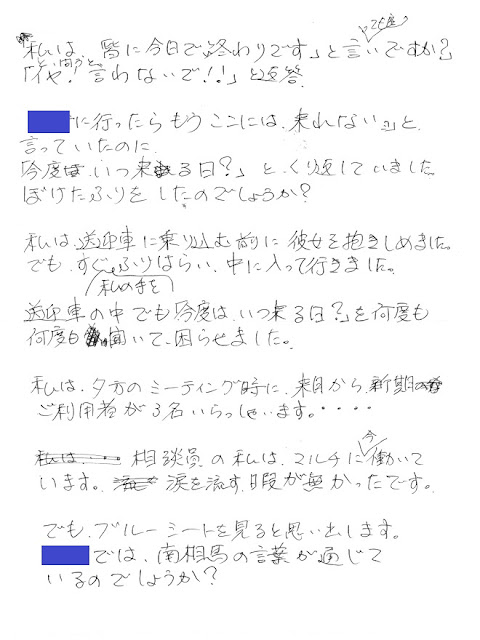 もう一度
私は、皆に今日で「終わりです」と言いですか?
と聞うと、
「イヤ! 言わないで!!」と返答
に行ったらもうここには、来れない」と
言っていたのに
「今度 いつ来る日?」と、くり返していました。
ぼけたふりをしたのでしょうか?
私は、送迎車に乗り込む前に彼女を抱きしめました。
でも、すぐ、ふりはらい、中に入って行きました。
私の手を
送迎車の中でも「今度は、いつ来る日?」を何度も
何度も 聞いて、困らせました。
私は、夕方のミーティング時に、来月から、新規
ご利用者が3名いらっしゃいます。・・・・
今
相談員の私は、マルチに働いて
います。涙を流す、暇が無かったです。
でも、ブルーシートを見ると思い出します。
では、南相馬の言葉が通じて
いるのでしょうか?